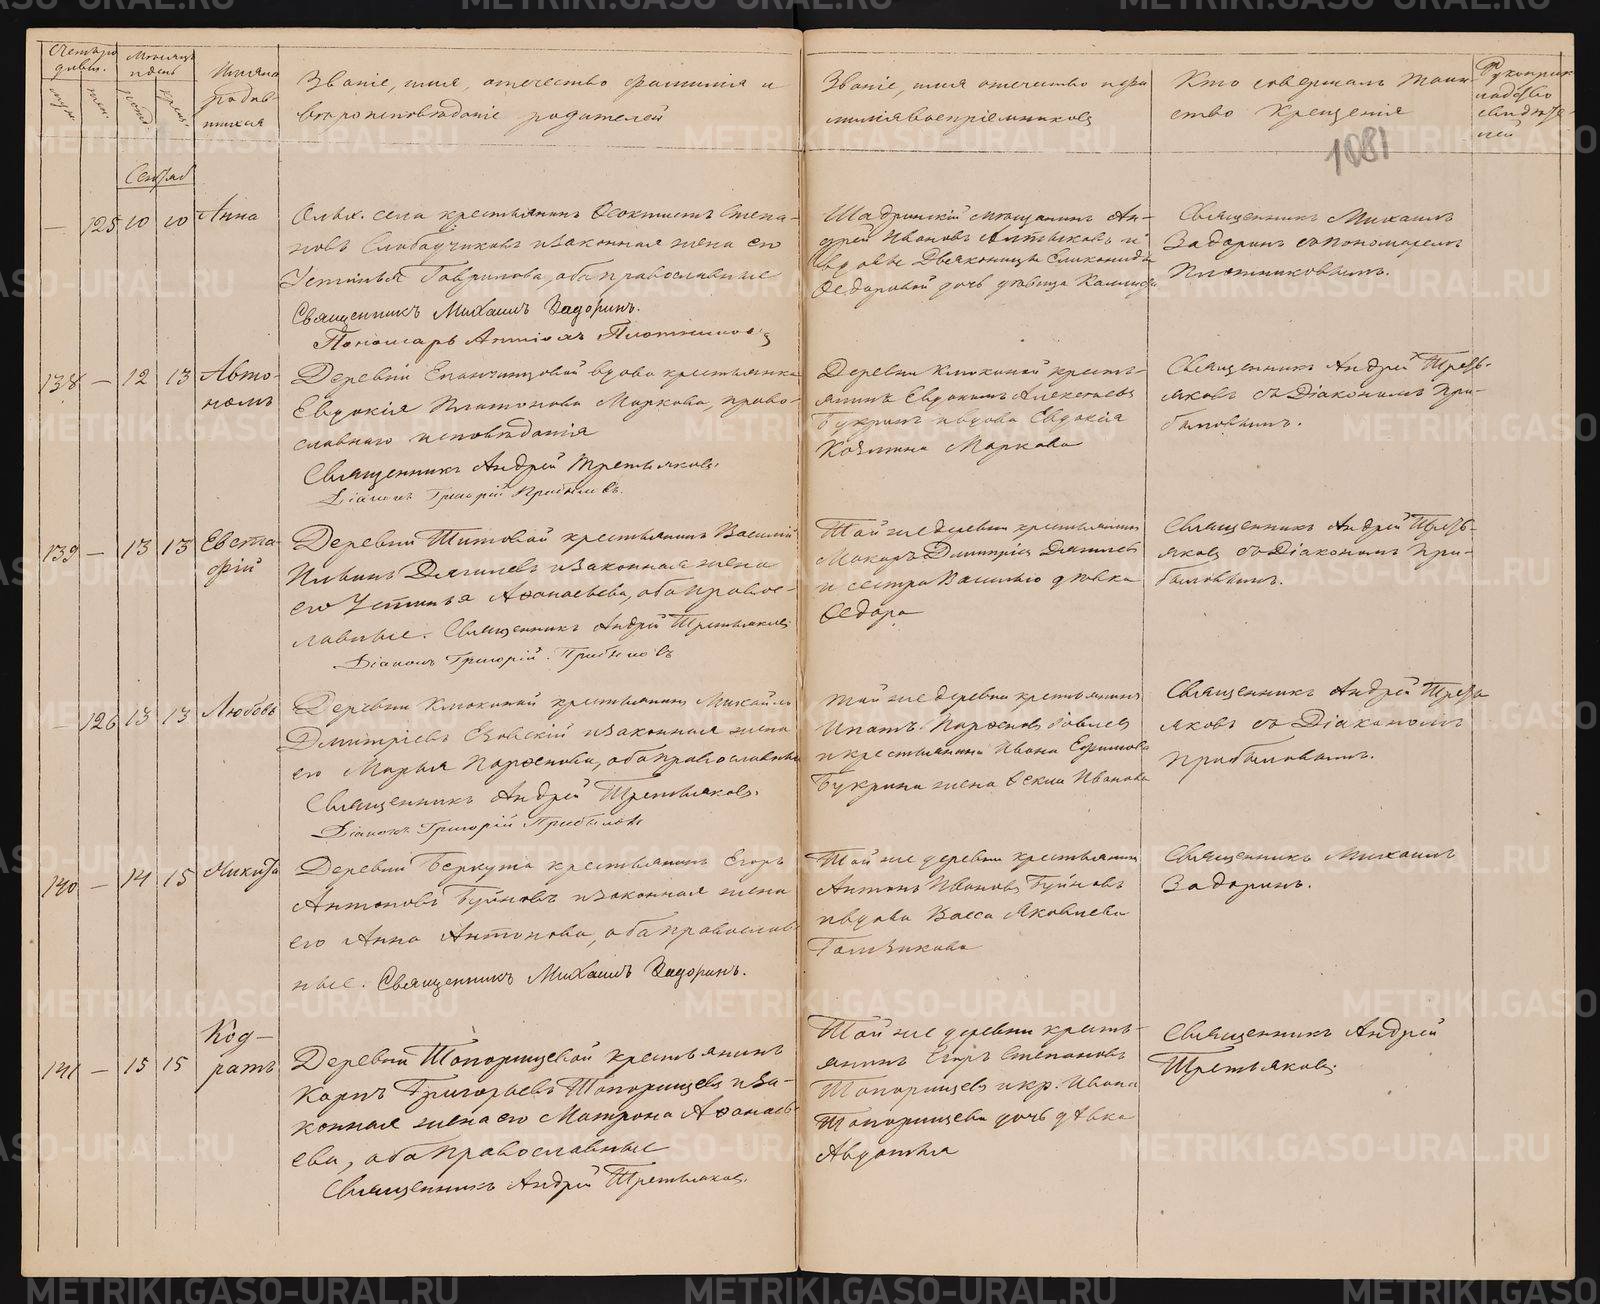 Счетъ родивш.
муж.
жен.
Мѣсяцъ и день
рожд.
крещ.
Имена родив-
шихся
Званіе, имя, отечество фамилія и
вѣроисповѣданіе родителей
Званіе, имя отечество и фа
милія воспріемниковъ
Кто совершалъ таин-
ство крещенія
Рукоприк
ладство
свидѣте-
лей
1081
Сентяб
— 125 10 10 Анна
крестьянинъ Ѳеоктистъ Степа-
новъ Слободчиковъ и законная жена его
Устинья Гаврилова, оба православные
Священникъ Михаилъ Задоринъ.
Пономарь Плотниковъ
Шадринскій мѣщанинъ Ан-
дрей Ивановъ и
вдовы
Ѳедоровой дочь дѣвица
Священникъ Михаилъ
Задоринъ съ пономаремъ
Плотниковымъ.
138 — 12 13 Авто-
номъ
Деревни вдова крестьянка
Евдокія Платонова Маркова, право-
славнаго исповѣданія
Священникъ Андрей Третьяковъ.
Діаконъ Григорій Прибыловъ.
Деревни Клюкиной кресть-
янинъ Евдокимъ Алексѣевъ
Букринъ и вдова Евдокія
Козьмина Маркова
Священникъ Андрей Треть-
яковъ съ Діакономъ При-
быловымъ.
139 — 13 13 Евста-
фій
Деревни Титовой крестьянинъ Василій
Дягилевъ и законная жена
его Устинья Аѳанасьева, оба правос-
лавные. Священникъ Андрей Третьяковъ
Діаконъ Григорій Прибыловъ
Той же деревни крестьянинъ
Макаръ Димитріевъ Дягилевъ
и сестра Василью дѣвка
Ѳедора
Священникъ Андрей Треть-
яковъ съ Діакономъ При-
быловымъ.
— 126 13 13 Любовь
Деревни Клюкиной крестьянинъ Михаилъ
Дмитріевъ и законная жена
его Марья Парѳенова, оба православные
Священникъ Андрей Третьяковъ.
Діаконъ Григорій Прибыловъ
Той же деревни крестьянинъ
Ипатъ Парѳеновъ
и крестьянина Ивана Ефимова
Букрина жена Иванова
Священникъ Андрей Треть
яковъ съ Діакономъ
Прибыловымъ.
140 — 14 15 Никита
Деревни Беркута крестьянинъ Егоръ
Антоновъ Буйновъ и законная жена
его Анна Антонова, оба православ-
ные. Священникъ Михаилъ Задоринъ.
Той же деревни крестьянинъ
Антонъ Ивановъ Буйновъ
и вдова Васса Яковлева
Священникъ Михаилъ
Задоринъ.
141 — 15 15 Код-
ратъ
Деревни Топорищевой крестьянинъ
Карпъ Григорьевъ Топорищевъ и за-
конная жена его Матрона Аѳанась-
ева, оба православные
Священникъ Андрей Третьяковъ.
Той же деревни кресть-
янинъ Егоръ Степановъ
Топорищевъ и кр. Ивана
Топорищева дочь дѣвка
Авдотья
Священникъ Андрей
Третьяковъ.
METRIKI.GASO-URAL.RU